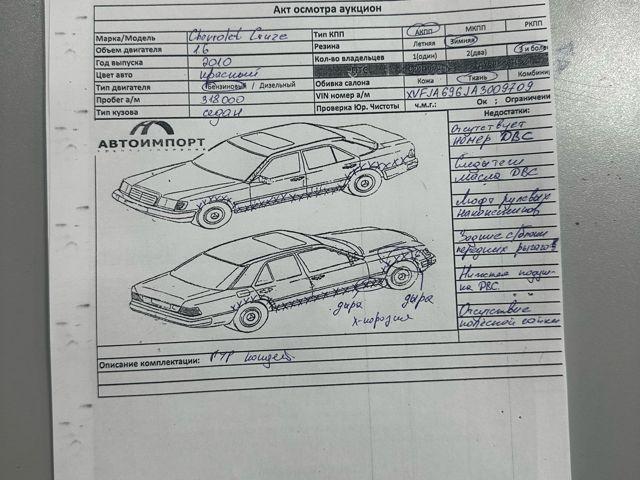 Акт осмотра аукцион
Марка/Модель Chevrolet Cruze Тип КПП АКПП МКПП РКПП
Объем двигателя 1.6 Резина Летняя Зимняя
Год выпуска 2010 Кол-во владельцев 1(один) 2(два) 3 и более
Цвет авто красный
Тип двигателя Бензиновый / Дизельный Обивка салона Кожа Ткань Комбини
Пробег а/м 318000 VIN номер а/м
Тип кузова седан Проверка Юр. Чистоты ч.м.г.: Ок ; Огранич
АВТОИМПОРТ
Недостатки:
Отсутствует
номер ДВС
Следы течи
масла ДВС
Люфт рулевых
наконечников
Задние с/блоки
передних рычагов
Нижняя подуш-
ка ДВС
Отсутствие
колесной гайки
дыра дыра
х-корозия
Описание комплектации: кондей